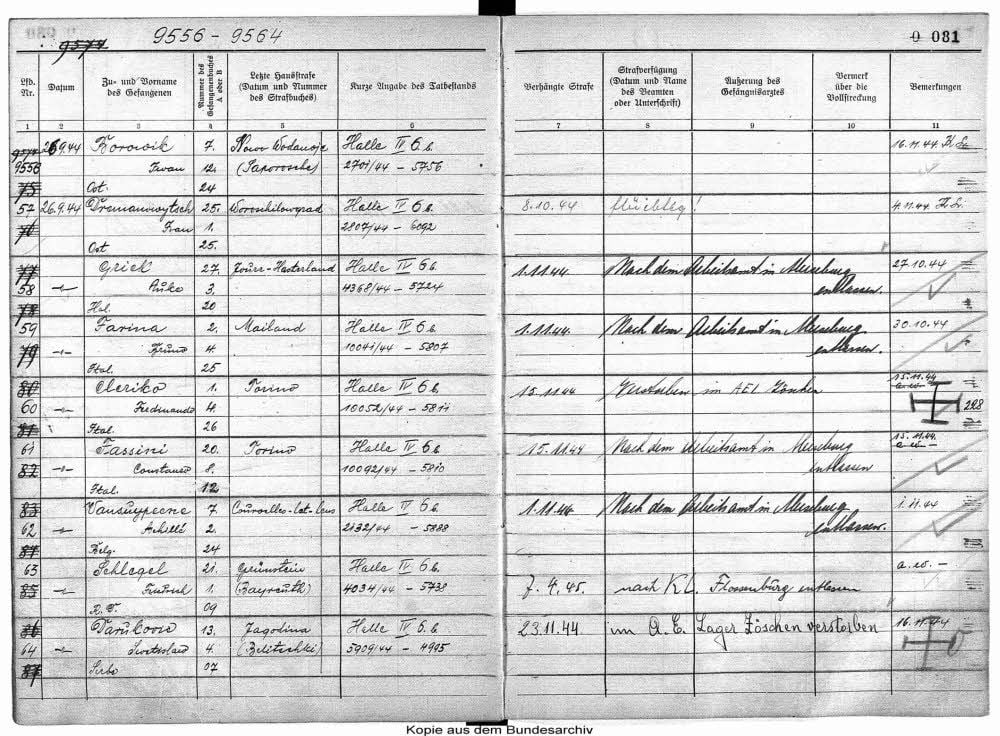 9577
9556 - 9564
0 081
Lfd. Nr.
Datum
Zu- und Vorname des Gefangenen
Nummer des Gefangenenbuches A oder B
Letzte Hausstrafe (Datum und Nummer des Strafbuches)
Kurze Angabe des Tatbestands
Verhängte Strafe
Strafverfügung (Datum und Name des Beamten oder Unterschrift)
Äußerung des Gefängnisarztes
Vermerk über die Vollstreckung
Bemerkungen
1 2 3 4 5 6 7 8 9 10 11
26.9.44 Borowik 7. Nowo Halle IV 6 b. 16.11.44
9556 Iwan 12. (Saporosche) 2701/44 - 5756
75 Ost. 24
57 26.9.44 25. Woroschilowgrad Halle IV 6 b. 8.10.44 flüchtig! 4.11.44
76 Iwan 1. 2807/44 - 6092
Ost 25.
77 Grick 27. Halle IV 6 b. 1.11.44. Nach dem Arbeitsamt in Merseburg 27.10.44
58 3. 4368/44 - 5724 entlassen.
78 Hol. 20
59 Farina 2. Mailand Halle IV 6 b. 1.11.44. Nach dem Arbeitsamt in Merseburg 30.10.44
79 Bruno 4. 10041/44 - 5807 entlassen.
Ital. 25
80 Cleriko 1. Torino Halle IV 6 b. 15.11.44 Verstorben im AEL Zöschen 15.11.44
60 Ferdinando 4. 10052/44 - 5811 298
81 Ital. 26
61 Fassini 20. Torino Halle IV 6 b. 15.11.44 Nach dem Arbeitsamt in Merseburg 15.11.44.
82 8. 10092/44 - 5810 entlassen
Ital. 12
83 7 Halle IV 6 b. 1.11.44. Nach dem Arbeitsamt in Merseburg 1.11.44
62 Achille 2. 2132/44 - 5888 entlassen.
84 Belg. 24
63 Schlegel 21. Grünstein Halle IV 6 b. a.w. -
85 Friedrich 1. (Bayreuth) 4034/44 - 5738 7.4.45. nach KL. Flossenbürg entlassen
R.D. 09
86 13. Jagodina Halle IV 6 b. 23.11.44 im A.E. Lager Zöschen verstorben 16.11.44
64 4. 5909/44 - 4995
87 Serbe 07
Kopie aus dem Bundesarchiv